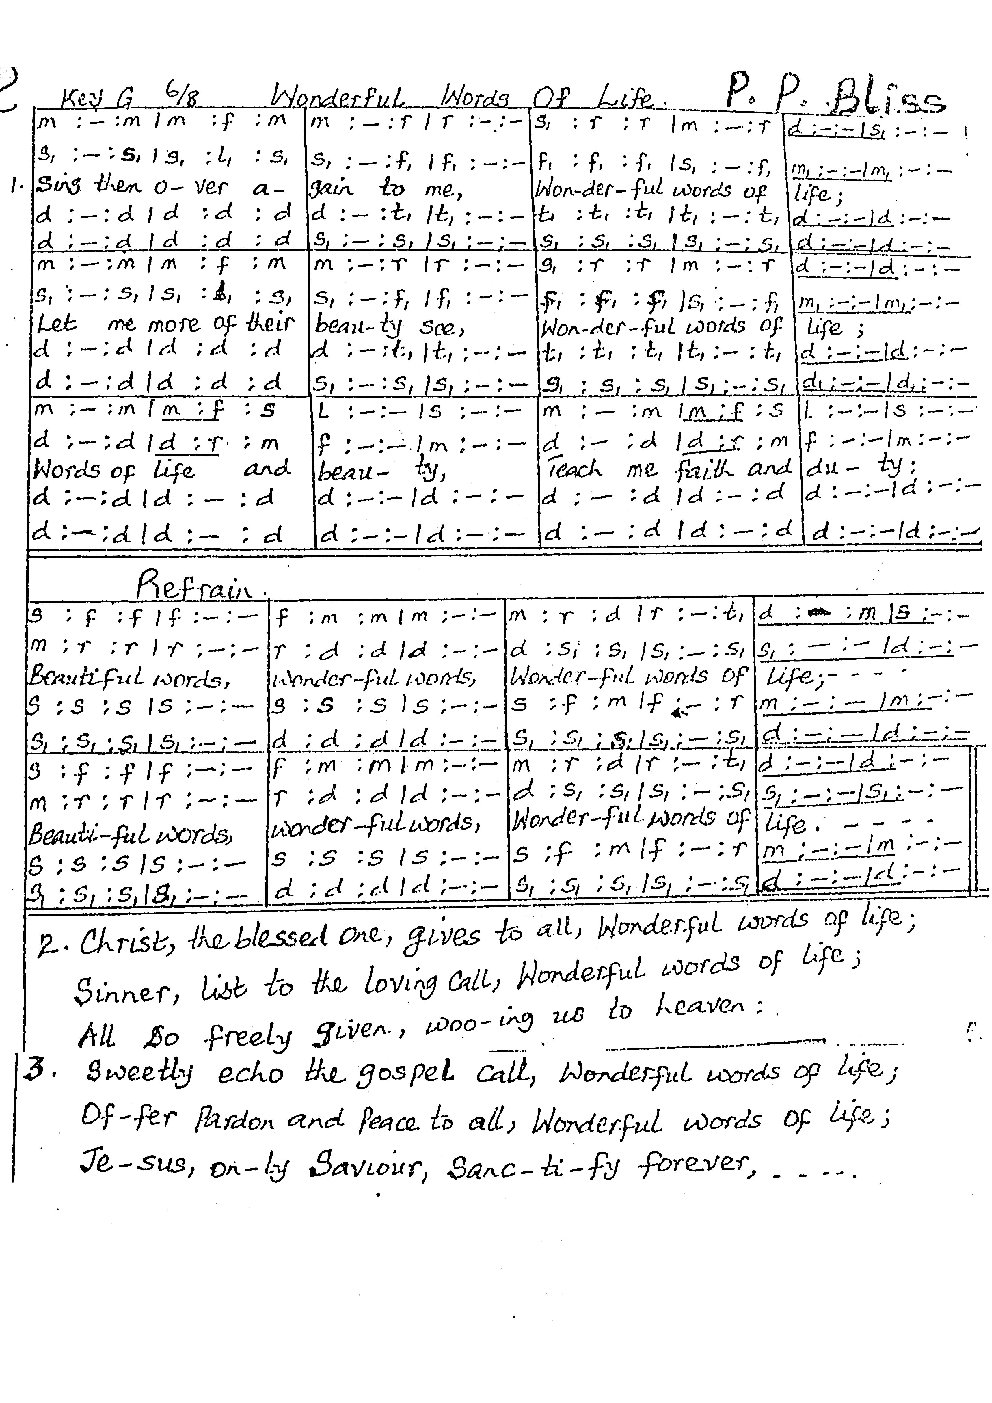 Key G 6/8 Wonderful Words Of Life. P. P. Bliss
m :– :m | m :f :m | m :– :r | r :– :– | s, :r :r | m :– :r | d :– :– | s, :– :–
s, :– :s, | s, :l, :s, | s, :– :f, | f, :– :– | f, :f, :f, | s, :– :f, | m, :– :– | m, :– :–
1. Sing them o-ver a- gain to me, Won-der-ful words of life;
d :– :d | d :d :d | d :– :t, | t, :– :– | t, :t, :t, | t, :– :t, | d :– :– | d :– :–
d :– :d | d :d :d | s, :– :s, | s, :– :– | s, :s, :s, | s, :– :s, | d :– :– | d :– :–
m :– :m | m :f :m | m :– :r | r :– :– | s, :r :r | m :– :r | d :– :– | d :– :–
s, :– :s, | s, :l, :s, | s, :– :f, | f, :– :– | f, :f, :f, | s, :– :f, | m, :– :– | m, :– :–
Let me more of their beau-ty see, Won-der-ful words of life;
d :– :d | d :d :d | d :– :t, | t, :– :– | t, :t, :t, | t, :– :t, | d :– :– | d :– :–
d :– :d | d :d :d | s, :– :s, | s, :– :– | s, :s, :s, | s, :– :s, | d, :– :– | d, :– :–
m :– :m | m :f :s | l :– :– | s :– :– | m :– :m | m :f :s | l :– :– | s :– :–
d :– :d | d :r :m | f :– :– | m :– :– | d :– :d | d :r :m | f :– :– | m :– :–
Words of life and beau- ty, Teach me faith and du-ty;
d :– :d | d :– :d | d :– :– | d :– :– | d :– :d | d :– :d | d :– :– | d :– :–
d :– :d | d :– :d | d :– :– | d :– :– | d :– :d | d :– :d | d :– :– | d :– :–
Refrain.
s :f :f | f :– :– | f :m :m | m :– :– | m :r :d | r :– :t, | d :– :m | s :– :–
m :r :r | r :– :– | r :d :d | d :– :– | d :s, :s, | s, :– :s, | s, :– :– | d :– :–
Beautiful words, wonder-ful words, Wonder-ful words of life; - - - -
s :s :s | s :– :– | s :s :s | s :– :– | s :f :m | f :– :r | m :– :– | m :– :–
s, :s, :s, | s, :– :– | d :d :d | d :– :– | s, :s, :s, | s, :– :s, | d :– :– | d :– :–
s :f :f | f :– :– | f :m :m | m :– :– | m :r :d | r :– :t, | d :– :– | d :– :–
m :r :r | r :– :– | r :d :d | d :– :– | d :s, :s, | s, :– :s, | s, :– :– | s, :– :–
Beauti-ful words, wonder-ful words, Wonder-ful words of life. - - - -
s :s :s | s :– :– | s :s :s | s :– :– | s :f :m | f :– :r | m :– :– | m :– :–
s, :s, :s, | s, :– :– | d :d :d | d :– :– | s, :s, :s, | s, :– :s, | d :– :– | d :– :–
2. Christ, the blessed One, gives to all, Wonderful words of life;
Sinner, list to the loving call, Wonderful words of life;
All so freely given, woo-ing us to heaven:
3. Sweetly echo the gospel call, Wonderful words of life;
Of-fer Pardon and Peace to all, Wonderful words of life;
Je-sus, on-ly Saviour, Sanc-ti-fy forever, - - - - -